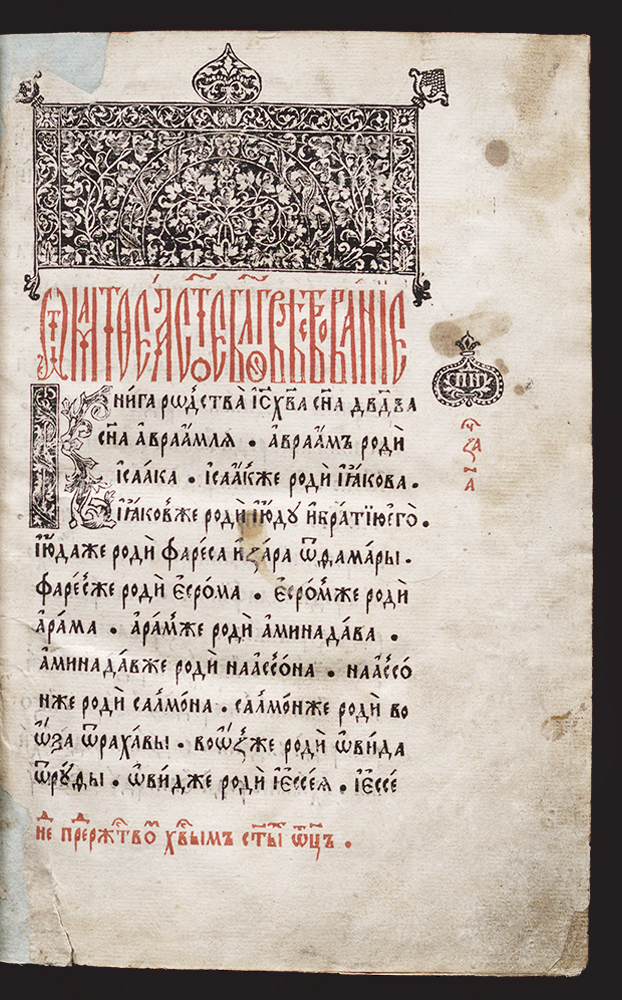 Ѿ маⷴѳеꙗ ст҃ое бл҃говѣствованїе
Кни́га рѡⷤ҇дства̀ і҆с҃хв҃а сн҃а дв҃дв҃а
сн҃а а҆враа́млѧ . а҆враа́мъ родѝ
і҆саа́ка . і҆саа́кже родѝ і҆а́кова .
і҆а́ковже родѝ і҆ю́дꙋ и҆бра́тїюе҆го̀ .
і҆ю́даже родѝ фаре́са и҆за́ра ѿѳама́ры .
фаре́сже родѝ є҆сро́ма . є҆сро́мже родѝ
а҆ра́ма . а҆ра́мже родѝ а҆минада́ва .
а҆минада́вже родѝ наассо́на . наассо́
нже родѝ салмо́на . салмо́нже родѝ во
ѡ҆́за ѿраха́вы . воѡ́зже родѝ ѡ҆ви́да
ѿрꙋ́ѳы . ѡ҆ви́дже родѝ і҆ессе́ѧ . і҆ессе́
не҃ пре́ржтⷭ҇во́ хв҃ымъ ст҃ы́ ѻ҆ц҃ъ .